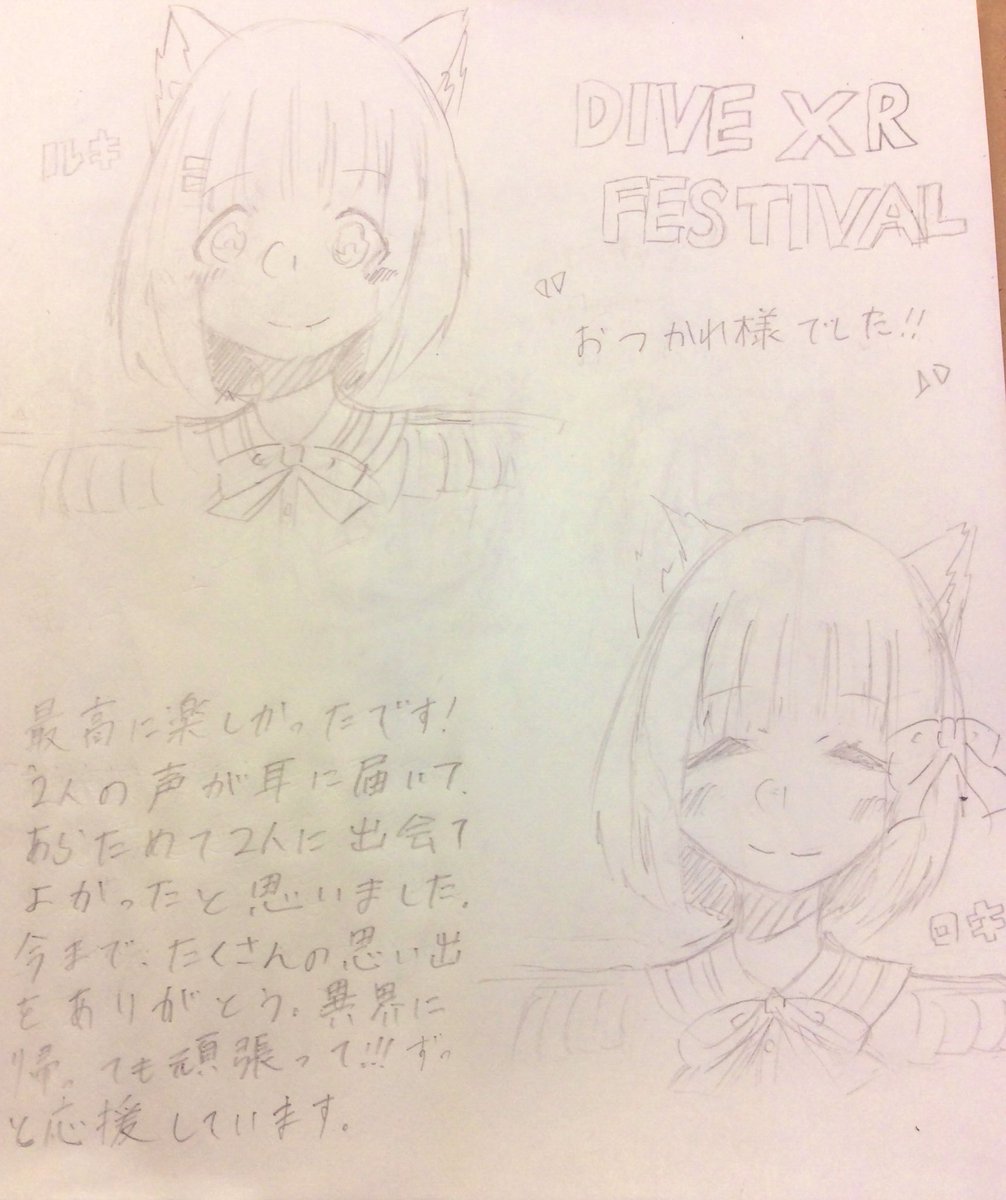 ルキ
DIVE XR
FESTIVAL
おつかれ様でした!!
最高に楽しかったです!
2人の声が耳に届いて、
あらためて2人に出会て
よかったと思いました。
今まで、たくさんの思い出
をありがとう。異界に
帰っても頑張って!!!ずっ
と応援しています。
ロキ